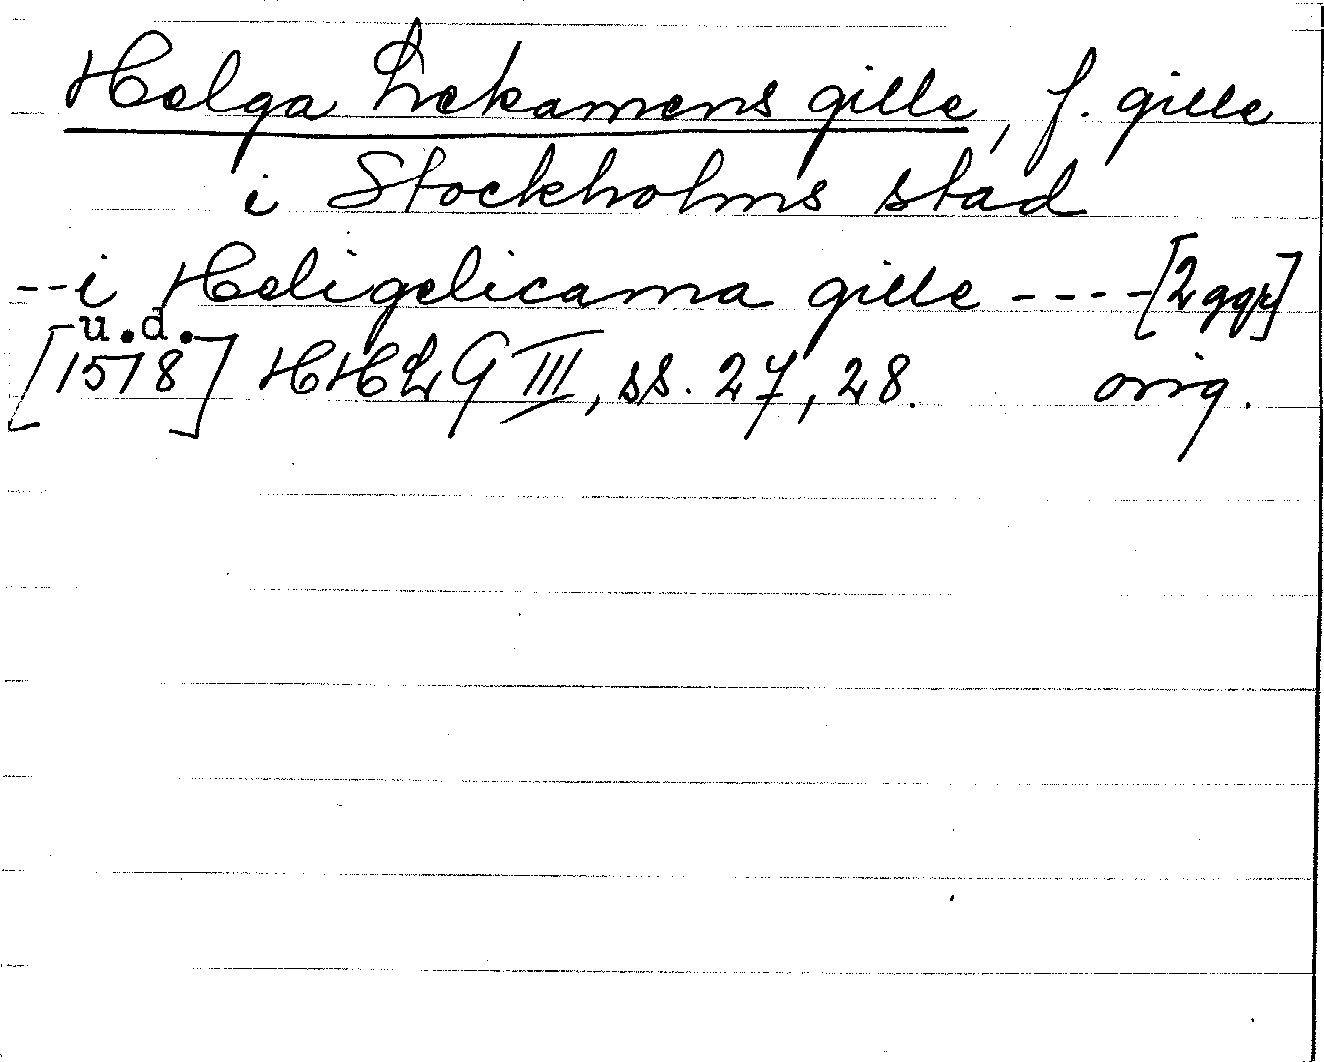 Helga Lekamens gille, f. gille
i Stockholms stad
--i Heligelicama gille ----[2 ggr]
u.d.
[1518] HHL 9 III, ss. 27, 28. orig.